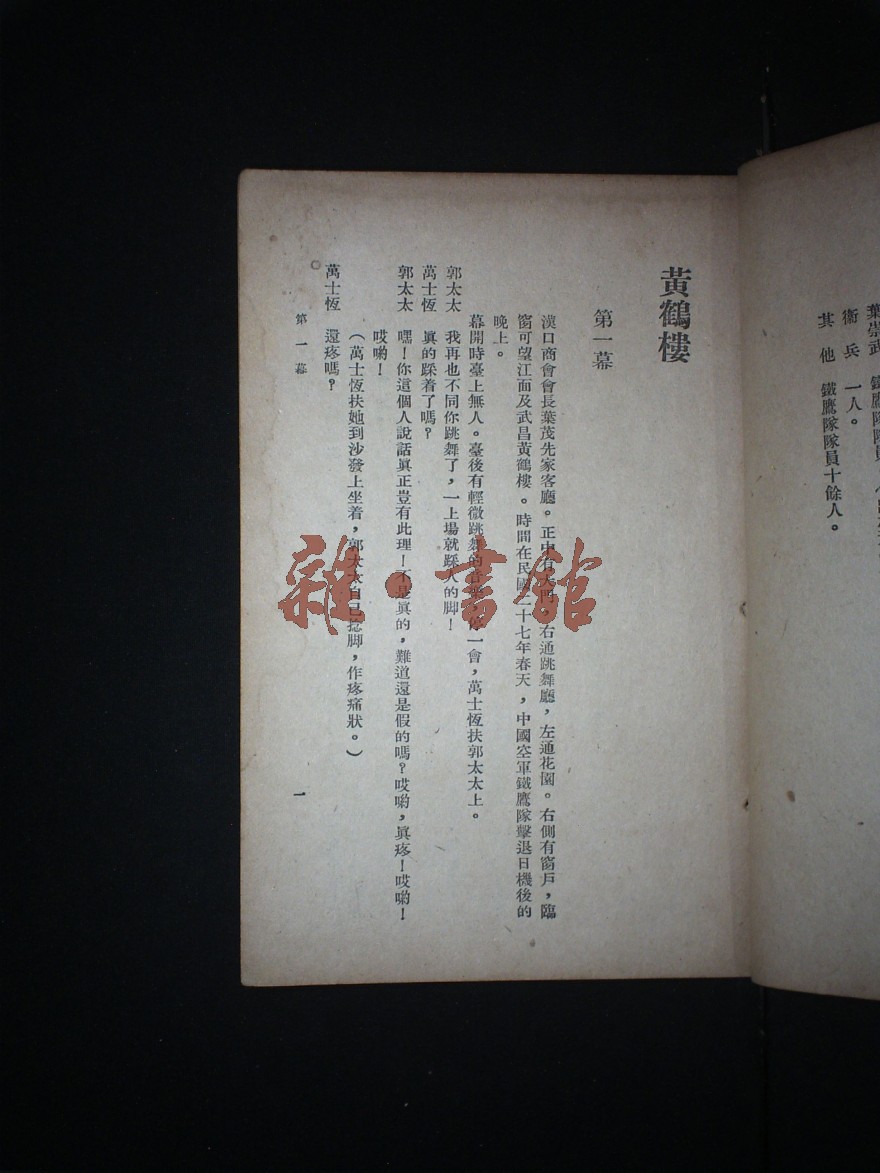 葉崇武 鐵鷹隊隊員
衞兵 一人。
其他 鐵鷹隊隊員十餘人。
黃鶴樓
第一幕
漢口商會會長葉茂先家客廳。正中有大門,右通跳舞廳,左通花園。右側有窗戶,臨
窗可望江面及武昌黃鶴樓。時間在民國二十七年春天,中國空軍鐵鷹隊擊退日機後的
晚上。
幕開時臺上無人。臺後有輕微跳舞的音樂。停一會,萬士恆扶郭太太上。
郭太太 我再也不同你跳舞了,一上場就踩人的脚!
萬士恆 眞的踩着了嗎?
郭太太 嘿!你這個人說話眞正豈有此理!不是眞的,難道還是假的嗎?哎喲,眞疼!哎喲!
哎喲!
(萬士恆扶她到沙發上坐着,郭太太自己捻脚,作疼痛狀。)
萬士恆 還疼嗎?
第一幕
一
雜·書館